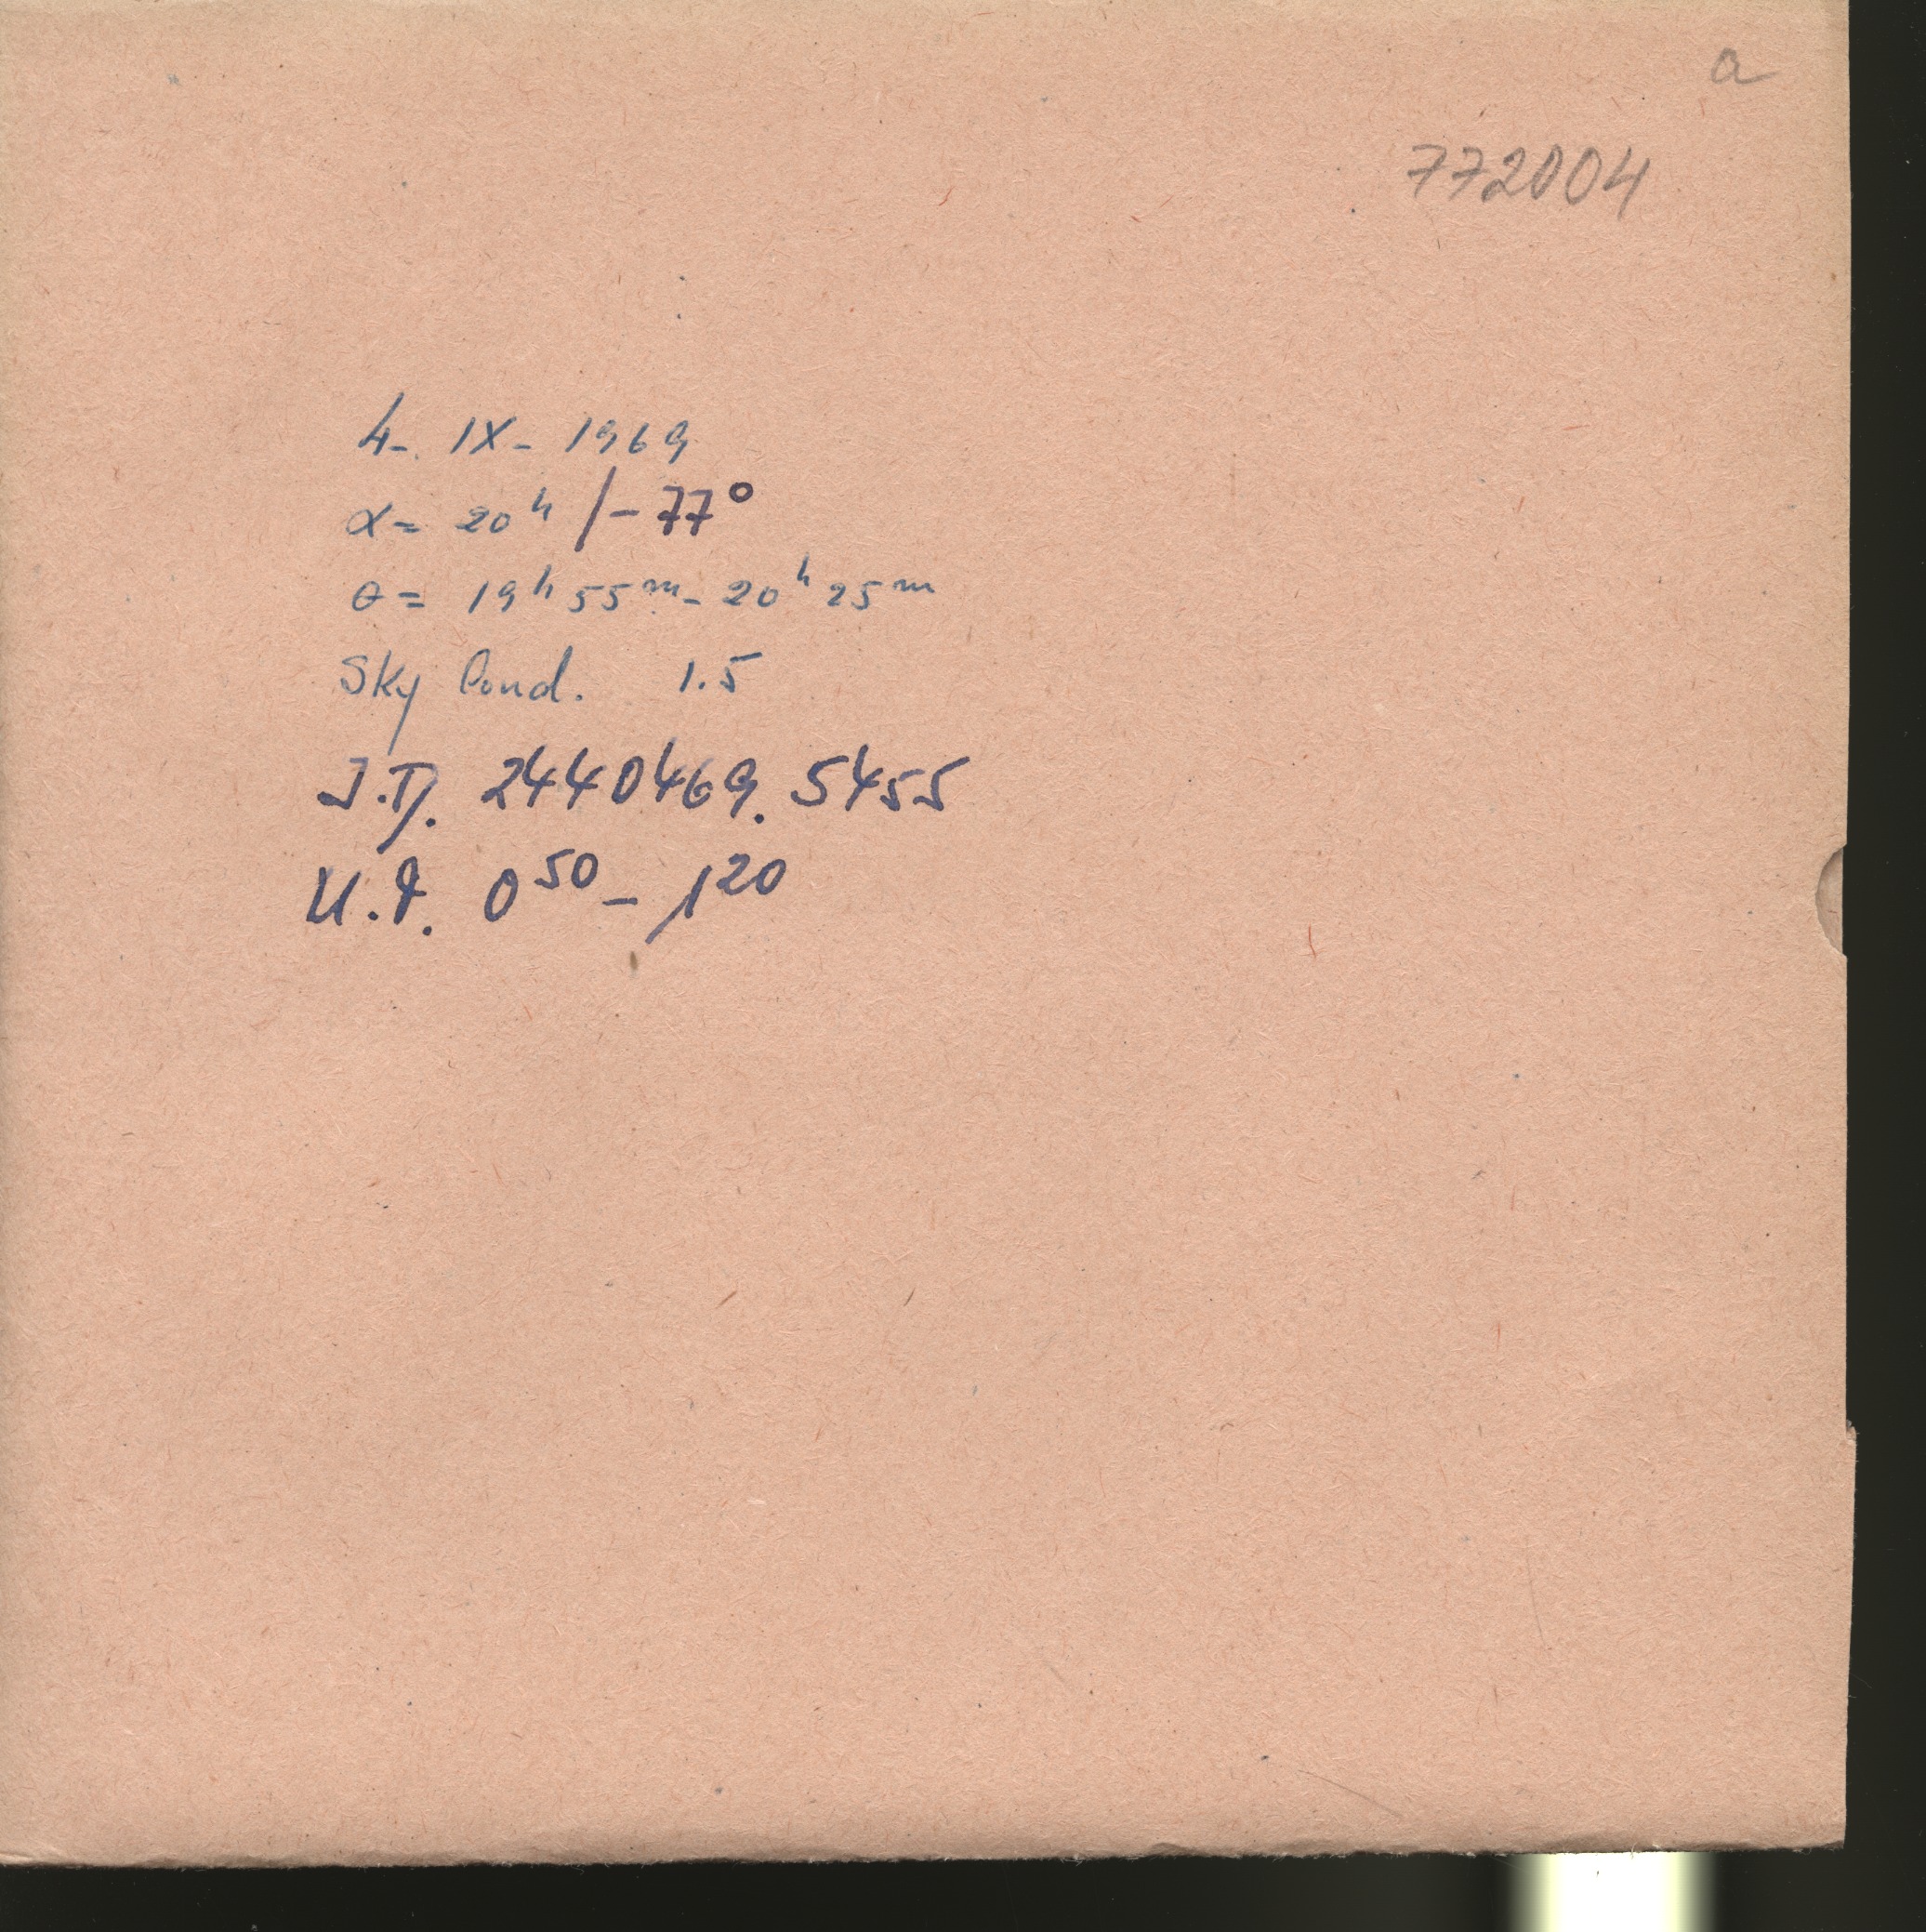 a
772004
4-. IX- 1969
α= 20ʰ /-77°
θ= 19ʰ 55ᵐ- 20ʰ 25ᵐ
Sky Cond. 1.5
J.D. 2440469.5455
U.T. 0⁵⁰ - 1²⁰